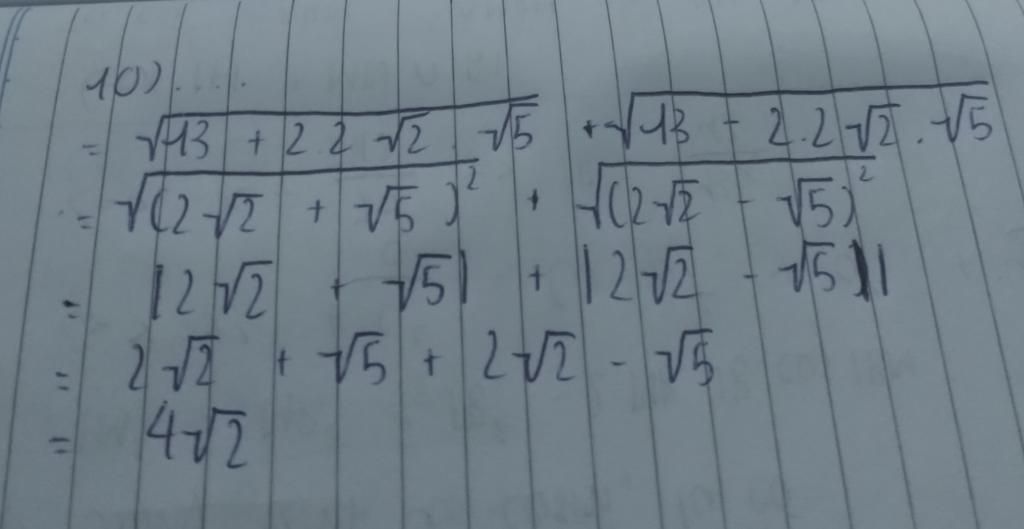 10) .....
= √(13 + 2.2 √2 . √5) + √(13 - 2.2 √2 . √5)
= √((2√2 + √5)²) + √((2√2 - √5)²)
= |2√2 + √5| + |2√2 - √5|
= 2√2 + √5 + 2√2 - √5
= 4√2